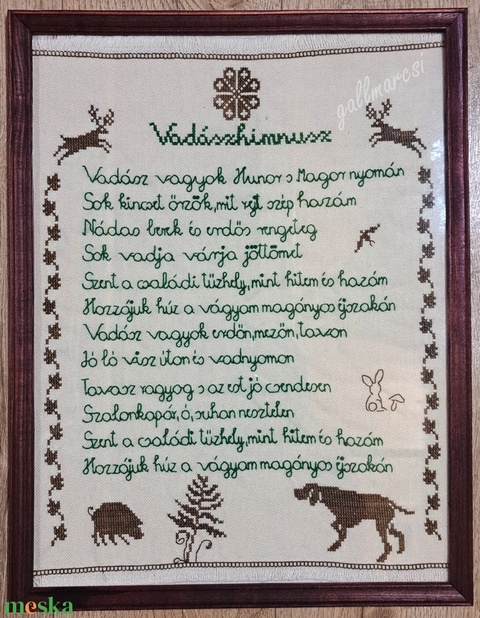 gallmarcsi
Vadászhimnusz
Vadász vagyok Hunor s Magor nyomán
Sok kincset őrzök, mit rejt szép hazám
Nádas berek és erdős rengeteg
Sok vadja várja jöttömet
Szent a családi tűzhely, mint hitem és hazám
Hozzájuk húz a vágyam magányos éjszakán
Vadász vagyok erdőn, mezőn, tavon
Jó ló visz úton és vadnyomon
Tavasz ragyog s az est jő csendesen
Szalonkapár, ó, suhan nesztelen
Szent a családi tűzhely, mint hitem és hazám
Hozzájuk húz a vágyam magányos éjszakán
meska